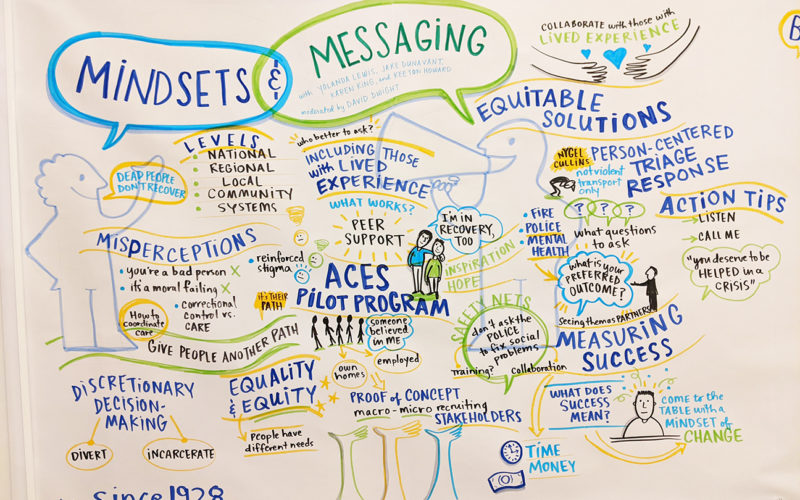 MINDSETS
&
MESSAGING
with YOLANDA LEWIS, JAKE DUNAVANT,
KAREN KING, and KEETON HOWARD
moderated by DAVID DWIGHT
COLLABORATE with those with
LIVED EXPERIENCE
B
LEVELS
NATIONAL
REGIONAL
LOCAL
COMMUNITY
SYSTEMS
DEAD PEOPLE
DON'T RECOVER
who better to ask?
INCLUDING THOSE
with LIVED
EXPERIENCE
WHAT WORKS?
PEER
SUPPORT
I'M IN
RECOVERY,
TOO
INSPIRATION
HOPE
EQUITABLE
SOLUTIONS
NYGEL
CULLINS
PERSON-CENTERED
TRIAGE
RESPONSE
not violent
transport
only
FIRE
POLICE
MENTAL
HEALTH
? ? ?
what questions
to ask
what is your
PREFERRED
OUTCOME?
seeing them as PARTNERS
ACTION TIPS
LISTEN
CALL ME
"you deserve to be
HELPED in a
CRISIS"
MISPERCEPTIONS
you're a bad person X
it's a moral failing X
correctional
control vs.
CARE
reinforced
stigma
it's THEIR
PATH
How to
coordinate
care
GIVE PEOPLE ANOTHER PATH
ACES
PILOT PROGRAM
someone
believed
in ME
own
homes
employed
SAFETY NETS
don't ask the
POLICE
to fix social
problems
training?
collaboration
MEASURING
SUCCESS
WHAT DOES
SUCCESS
MEAN?
COME to the
TABLE with a
MINDSET of
CHANGE
TIME
MONEY
DISCRETIONARY
DECISION-
MAKING
DIVERT
INCARCERATE
EQUALITY
& EQUITY
People have
different needs
PROOF of CONCEPT
macro-micro recruiting
STAKEHOLDERS
since 1928